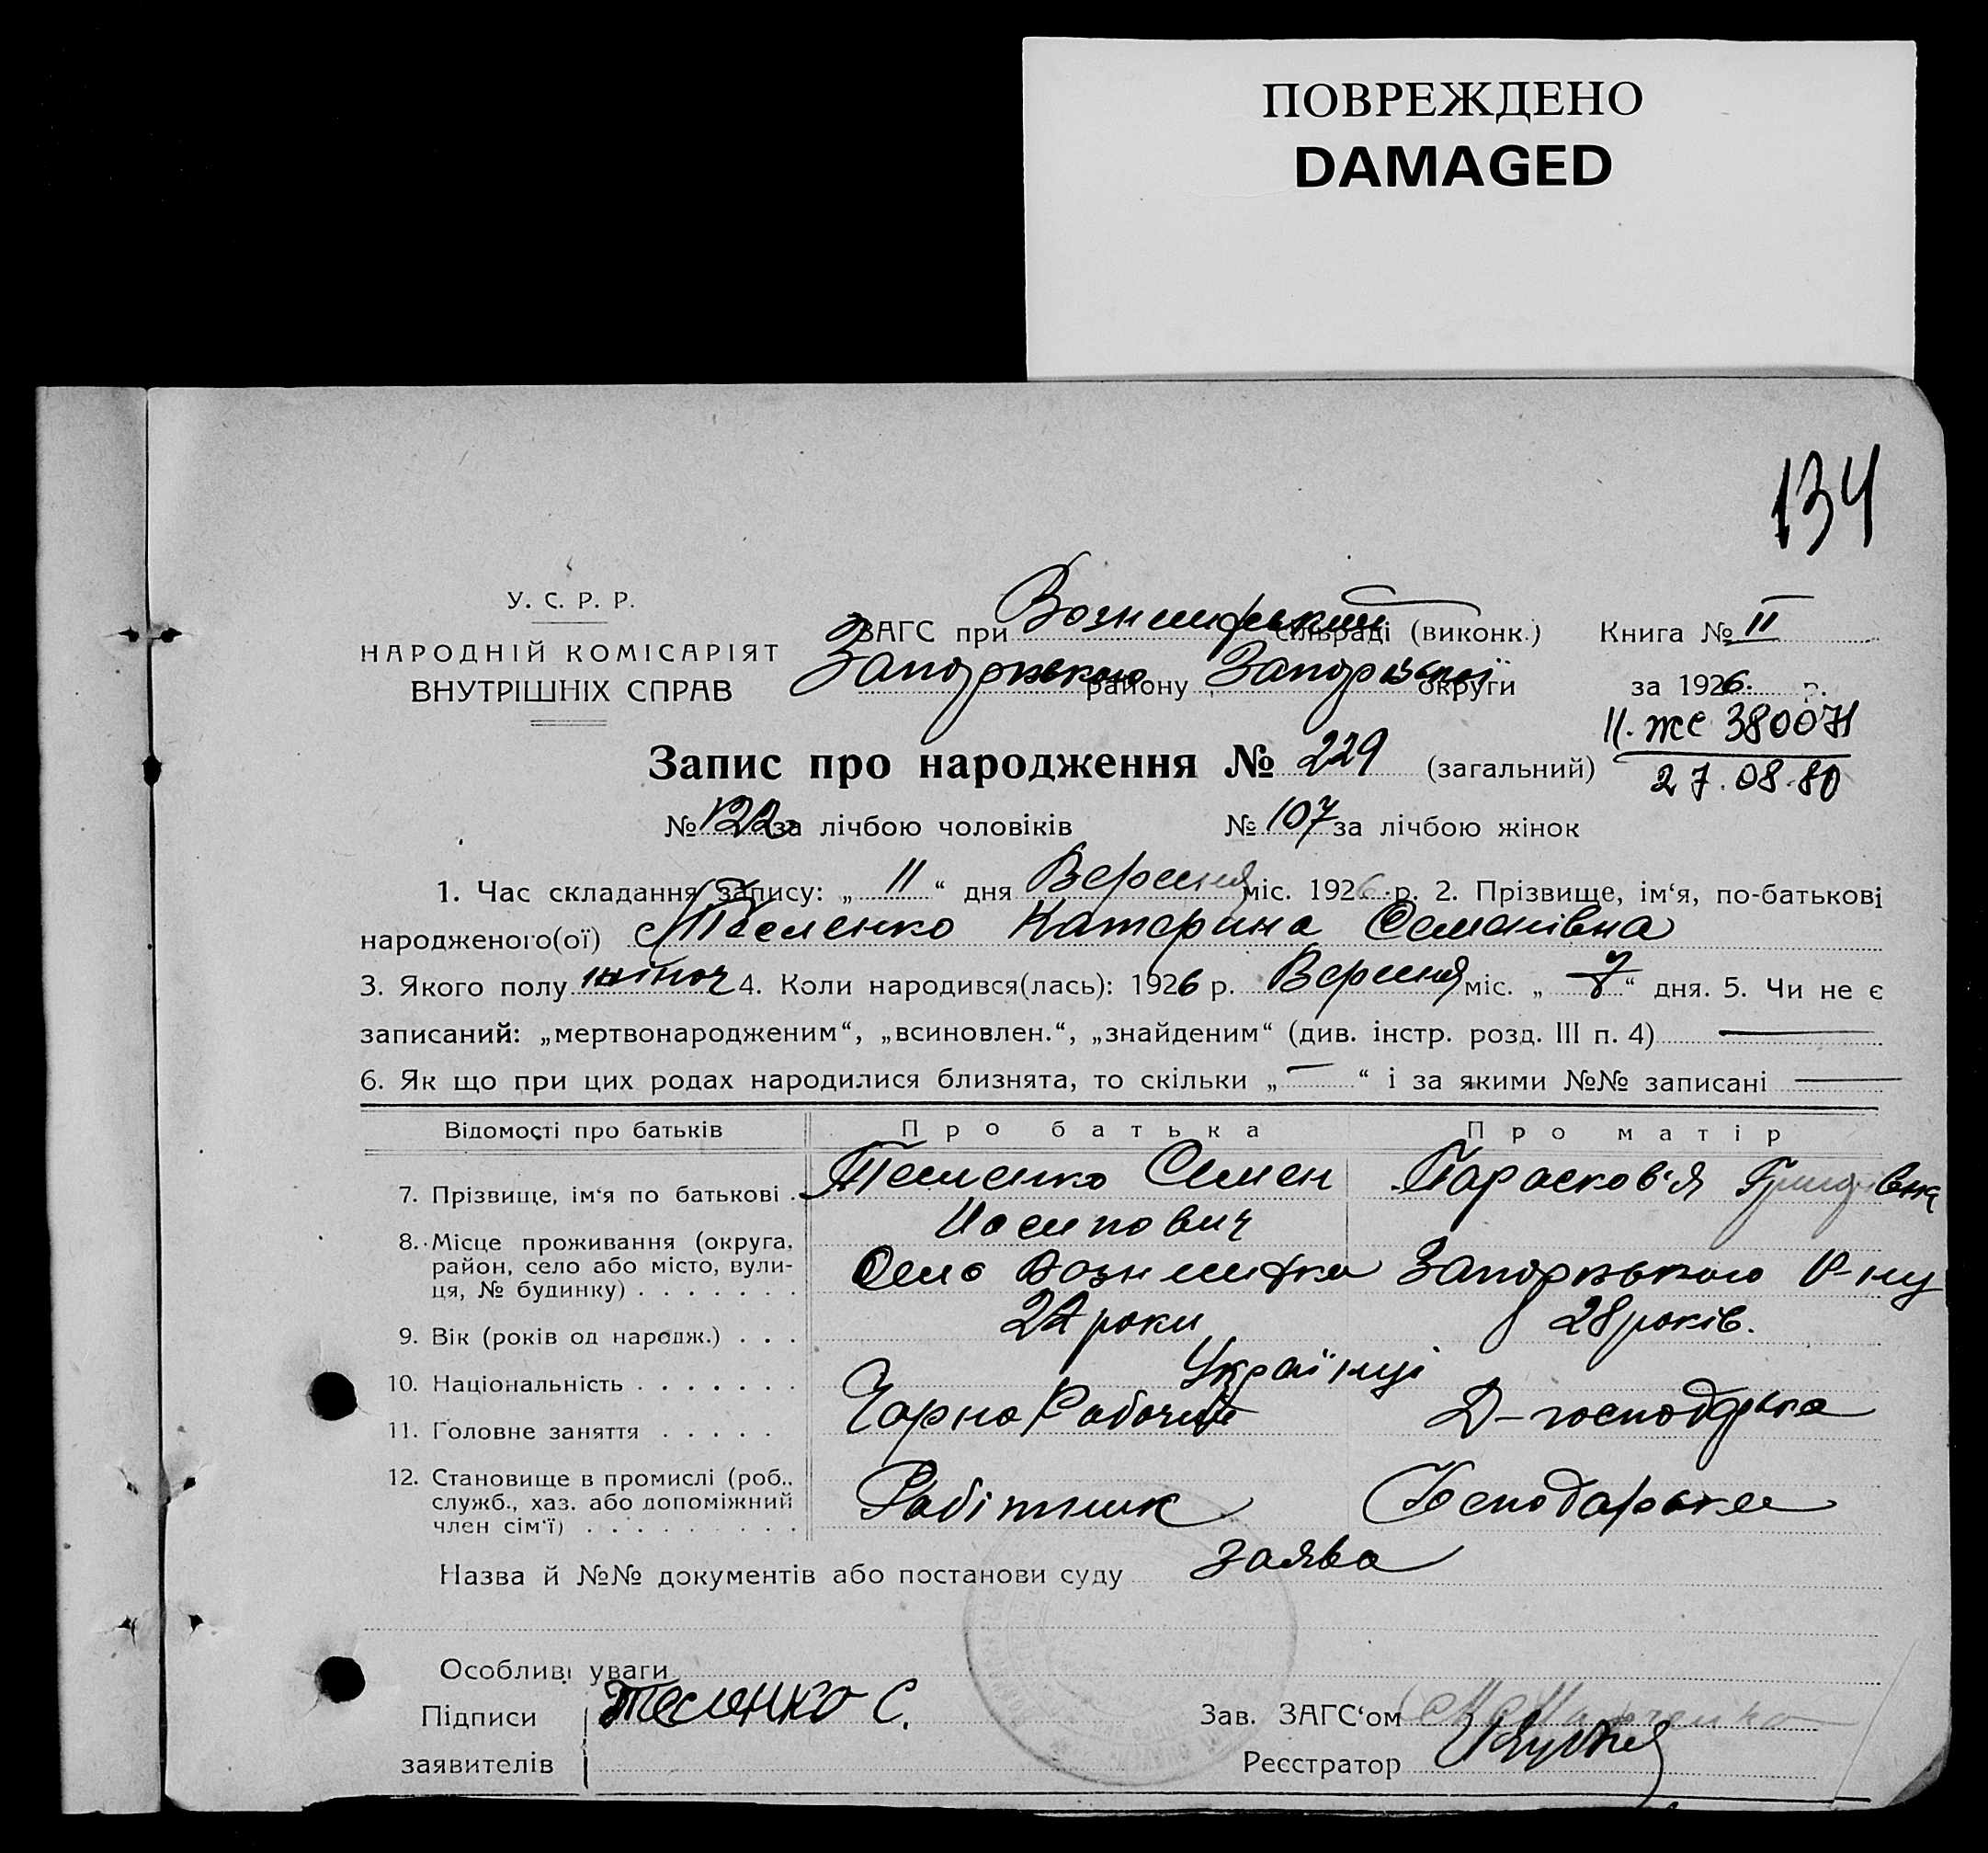 ПОВРЕЖДЕНО
DAMAGED
134
У. С. Р. Р.
НАРОДНІЙ КОМІСАРІЯТ
ВНУТРІШНІХ СПРАВ
ЗАГС при сільраді (виконк.) Книга № II
району Запорізької округи за 1926. р.
II. ЖС 380071
27.08.80
Запис про народження № 229 (загальний)
№ 122 за лічбою чоловіків № 107 за лічбою жінок
1. Час складання запису: „ 11 “ дня Вересня міс. 1926 р. 2. Прізвище, ім‘я, по-батькові
народженого(ої) Тесленко Катерина Семенівна
3. Якого полу жіноч 4. Коли народився(лась): 1926 р. Вересня міс. „ 7 “ дня. 5. Чи не є
записаний: „мертвонародженим“, „всиновлен.“, „знайденим“ (див. інстр. розд. III п. 4) —
6. Як що при цих родах народилися близнята, то скільки „ — “ і за якими №№ записані —
Відомості про батьків Про батька Про матір
7. Прізвище, ім‘я по батькові . Тесленко Семен Парасков‘я
Иосипович
8. Місце проживання (округа, район, село або місто, вулиця, № будинку) . . . . . . . Село Запорізького р-ну
9. Вік (років од народж.) . . . роки 28 років.
10. Національність . . . . . . . Українці
11. Головне заняття . . . . . Чорно Рабочий Д-господарка
12. Становище в промислі (роб., служб., хаз. або допоміжний член сім‘ї) . . . . . . . . . Робітник Господарька
Назва й №№ документів або постанови суду заява
Особливі уваги
Підписи Тесленко С. Зав. ЗАГС‘ом
заявителів Реєстратор